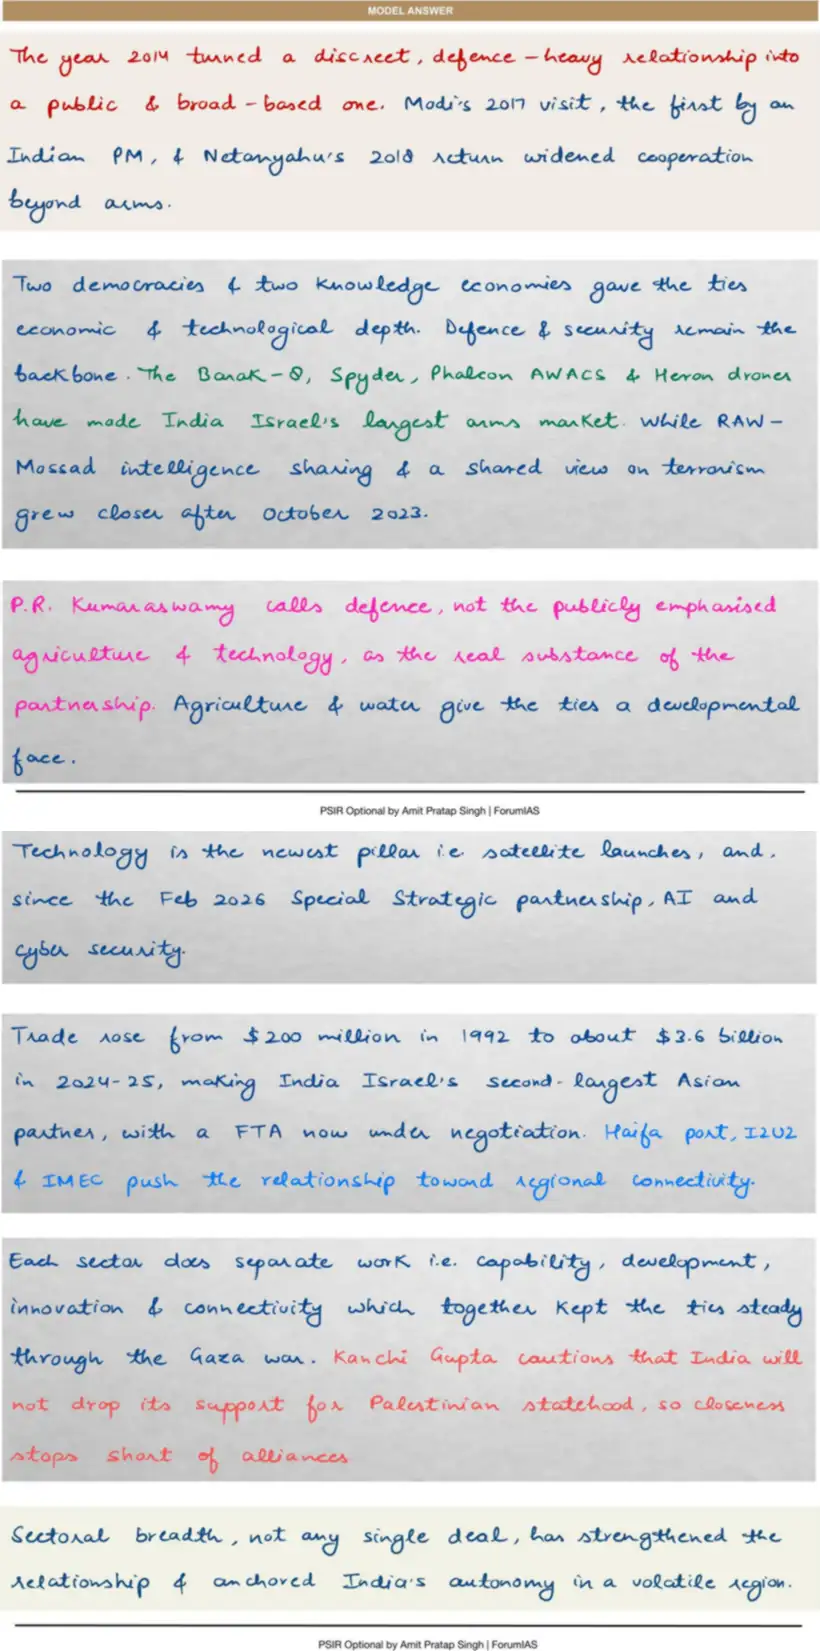 MODEL ANSWER
The year 2014 turned a discreet, defence-heavy relationship into
a public & broad-based one. Modi's 2017 visit, the first by an
Indian PM, & Netanyahu's 2018 return widened cooperation
beyond arms.
Two democracies & two knowledge economies gave the ties
economic & technological depth. Defence & security remain the
backbone. The Barak-8, Spyder, Phalcon AWACS & Heron drones
have made India Israel's largest arms market. While RAW-
Mossad intelligence sharing & a shared view on terrorism
grew closer after October 2023.
P.R. Kumaraswamy calls defence, not the publicly emphasised
agriculture & technology, as the real substance of the
partnership. Agriculture & water give the ties a developmental
face.
PSIR Optional by Amit Pratap Singh | ForumIAS
Technology is the newest pillar i.e. satellite launches, and,
since the Feb 2026 Special Strategic partnership, AI and
cyber security.
Trade rose from $200 million in 1992 to about $3.6 billion
in 2024-25, making India Israel's second-largest Asian
partner, with a FTA now under negotiation. Haifa port, I2U2
& IMEC push the relationship toward regional connectivity.
Each sector does separate work i.e. capability, development,
innovation & connectivity which together kept the ties steady
through the Gaza war. Kanchi Gupta cautions that India will
not drop its support for Palestinian statehood, so closeness
stops short of alliances
Sectoral breadth, not any single deal, has strengthened the
relationship & anchored India's autonomy in a volatile region.
PSIR Optional by Amit Pratap Singh | ForumIAS